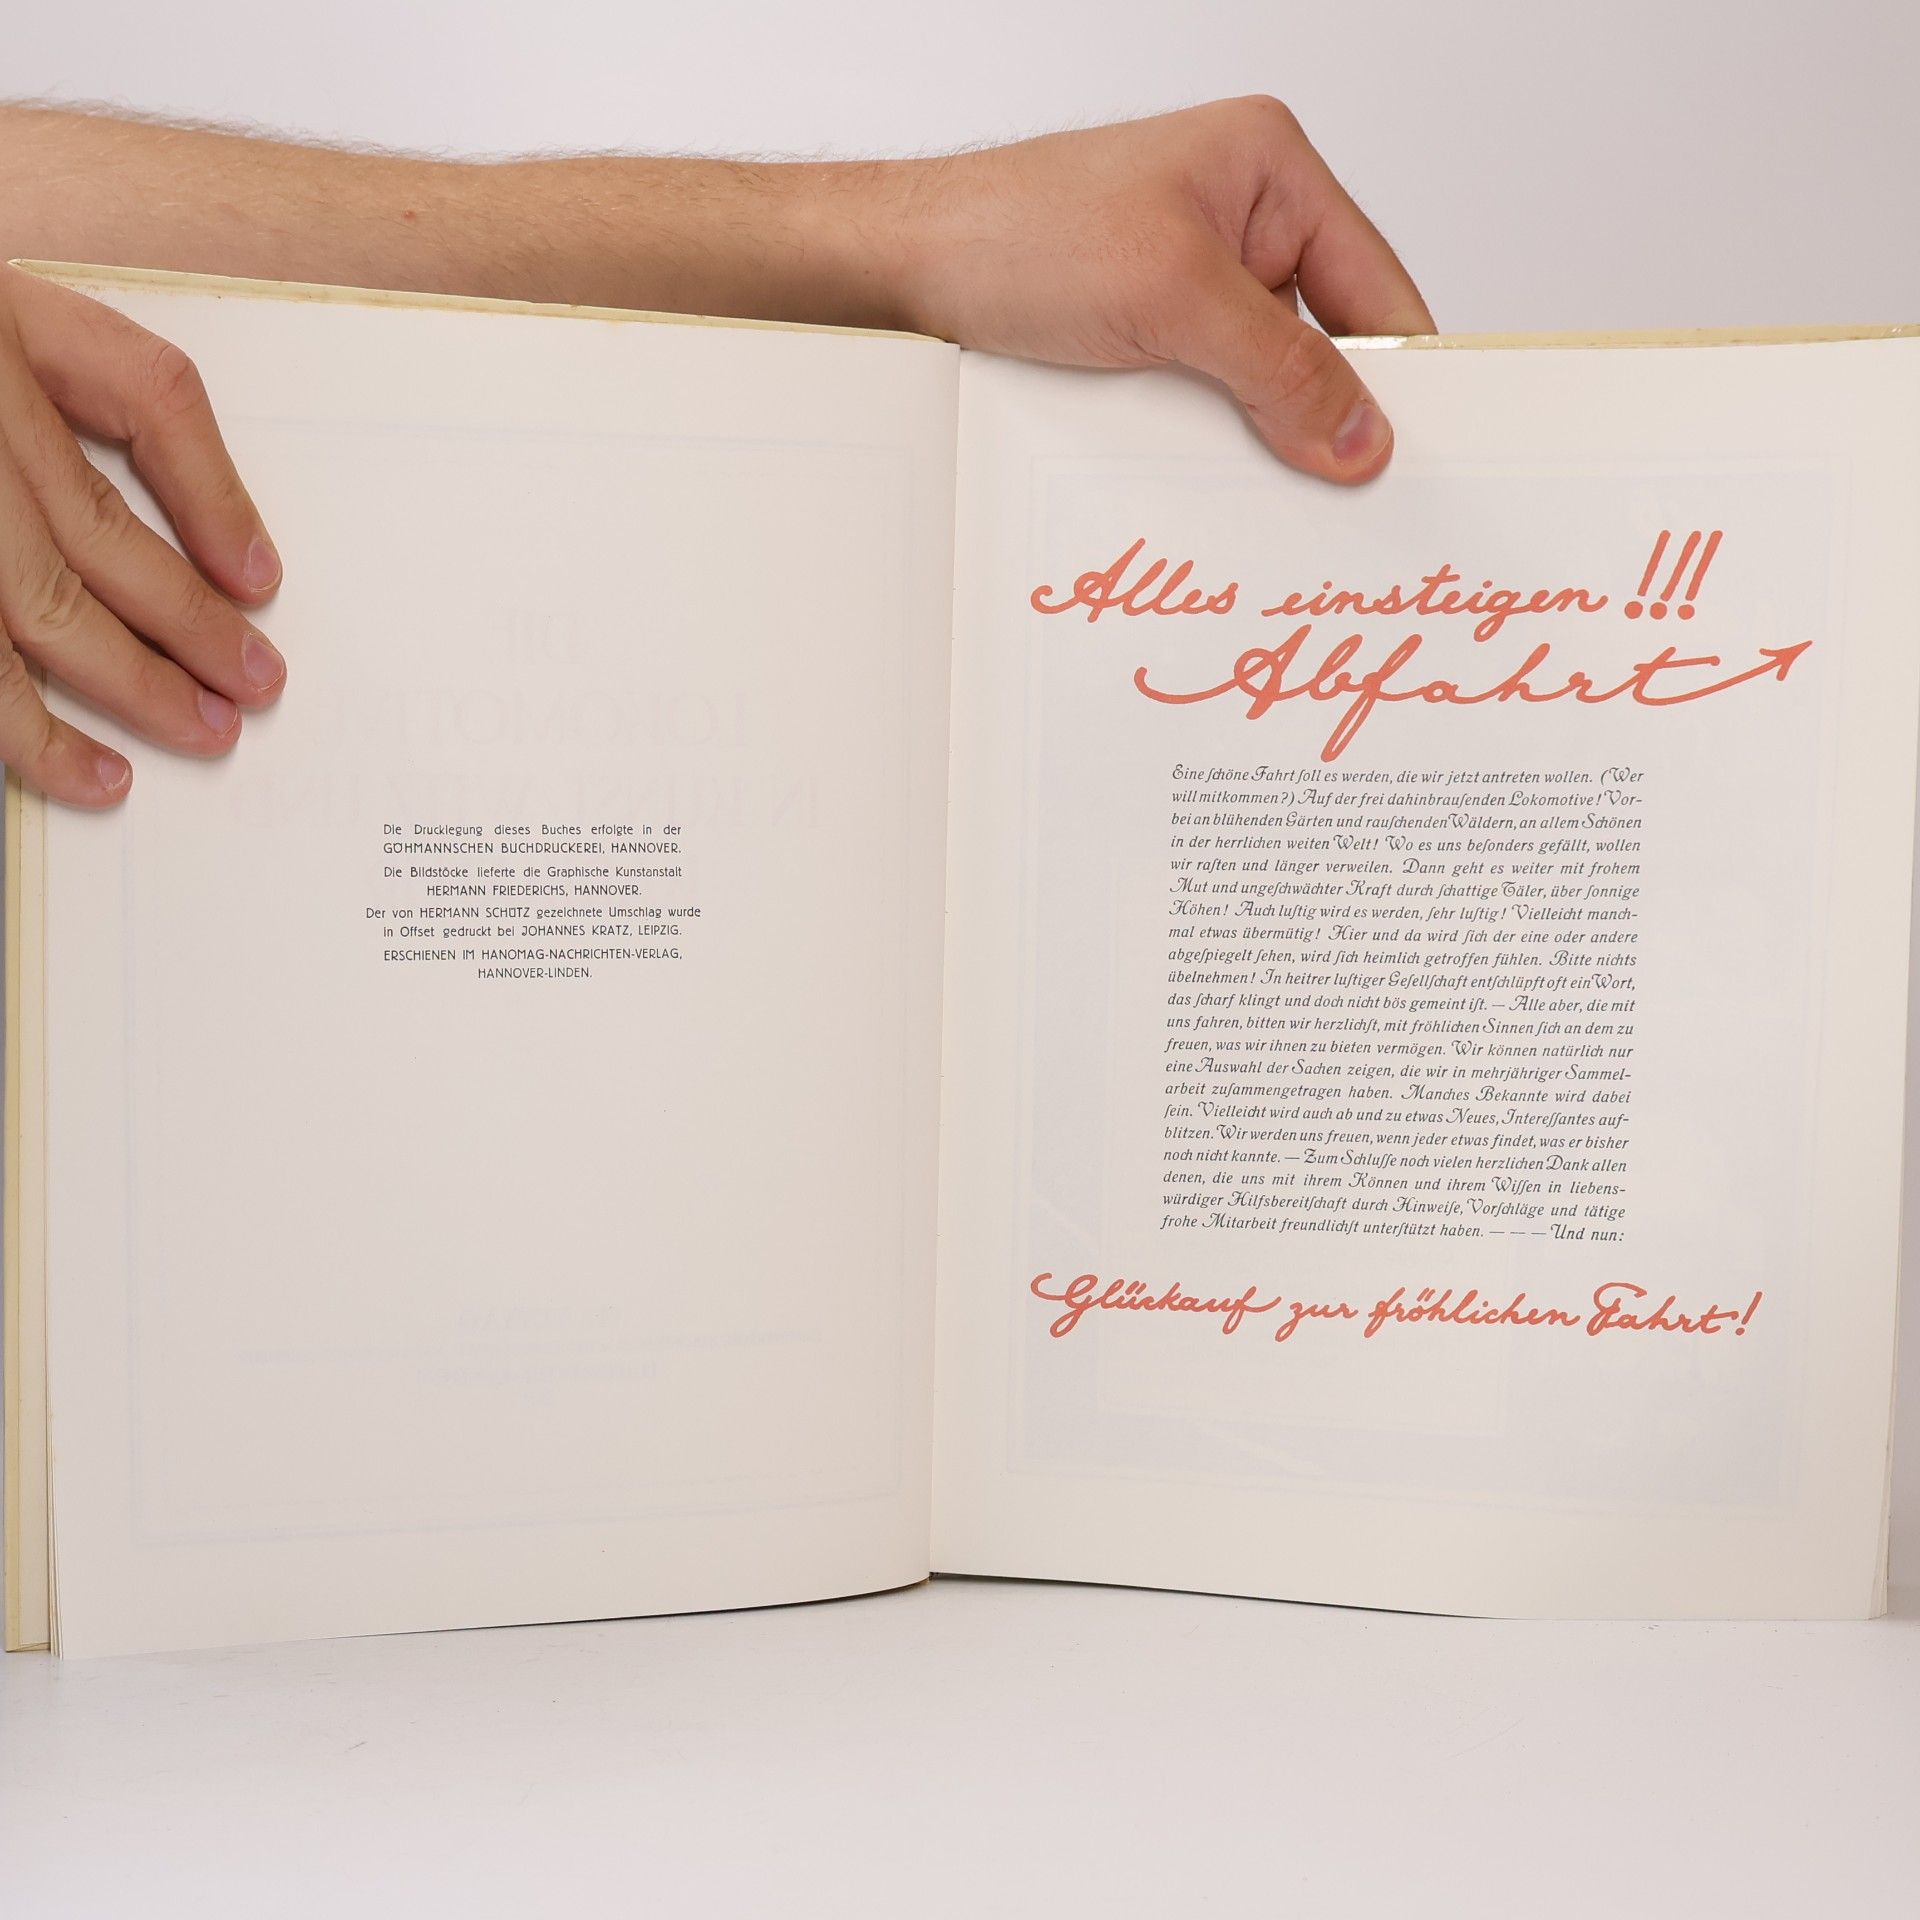 Die Drucklegung dieses Buches erfolgte in der
GÖHMANNSCHEN BUCHDRUCKEREI, HANNOVER.
Die Bildstöcke lieferte die Graphische Kunstanstalt
HERMANN FRIEDERICHS, HANNOVER.
Der von HERMANN SCHÜTZ gezeichnete Umschlag wurde
in Offset gedruckt bei JOHANNES KRATZ, LEIPZIG.
ERSCHIENEN IM HANOMAG-NACHRICHTEN-VERLAG,
HANNOVER-LINDEN.
Alles einsteigen!!!
Abfahrt
Eine ſchöne Fahrt ſoll es werden, die wir jetzt antreten wollen. (Wer
will mitkommen?) Auf der frei dahinbrauſenden Lokomotive! Vor-
bei an blühenden Gärten und rauſchenden Wäldern, an allem Schönen
in der herrlichen weiten Welt! Wo es uns beſonders gefällt, wollen
wir raſten und länger verweilen. Dann geht es weiter mit frohem
Mut und ungeſchwächter Kraft durch ſchattige Täler, über ſonnige
Höhen! Auch luſtig wird es werden, ſehr luſtig! Vielleicht manch-
mal etwas übermütig! Hier und da wird ſich der eine oder andere
abgeſpiegelt ſehen, wird ſich heimlich getroffen fühlen. Bitte nichts
übelnehmen! In heitrer luſtiger Geſellſchaft entſchlüpft oft ein Wort,
das ſcharf klingt und doch nicht bös gemeint iſt. — Alle aber, die mit
uns fahren, bitten wir herzlichſt, mit fröhlichen Sinnen ſich an dem zu
freuen, was wir ihnen zu bieten vermögen. Wir können natürlich nur
eine Auswahl der Sachen zeigen, die wir in mehrjähriger Sammel-
arbeit zuſammengetragen haben. Manches Bekannte wird dabei
ſein. Vielleicht wird auch ab und zu etwas Neues, Intereſſantes auf-
blitzen. Wir werden uns freuen, wenn jeder etwas findet, was er bisher
noch nicht kannte. — Zum Schluſſe noch vielen herzlichen Dank allen
denen, die uns mit ihrem Können und ihrem Wiſſen in liebens-
würdiger Hilfsbereitſchaft durch Hinweiſe, Vorſchläge und tätige
frohe Mitarbeit freundlichſt unterſtützt haben. — — — Und nun:
Glückauf zur fröhlichen Fahrt!